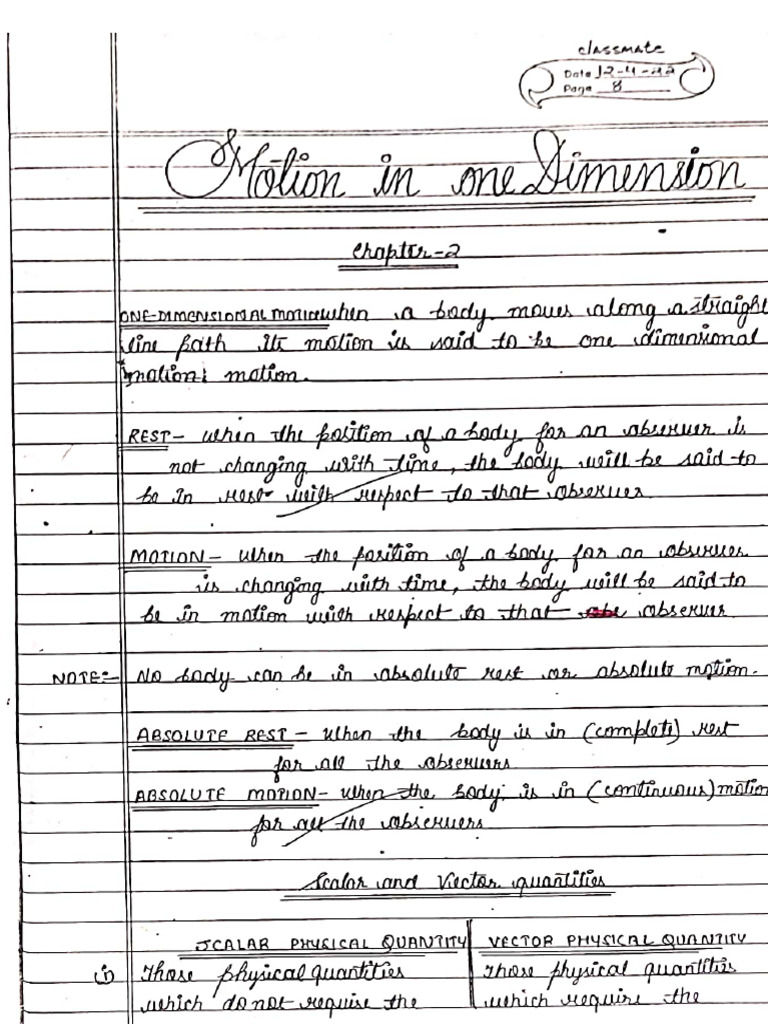 classmate
Date 12-4-22
Page 8
Motion in one Dimension
Chapter-2
ONE-DIMENSIONAL MOTION when a body moves along a straight
line path its motion is said to be one dimensional
motion: motion.
REST- when the position of a body for an observer is
not changing with time, the body will be said to
be in rest with respect to that observer
MOTION- when the position of a body for an observer
is changing with time, the body will be said to
be in motion with respect to that obe observer
NOTE:- No body can be in absolute rest or absolute motion.
ABSOLUTE REST - When the body is in (complete) rest
for all the observers
ABSOLUTE MOTION- when the body is in (continuous) motion
for all the observers
Scalar and Vector quantities
SCALAR PHYSICAL QUANTITY VECTOR PHYSICAL QUANTITY
(i) Those physical quantities Those physical quantities
which do not require the which require the